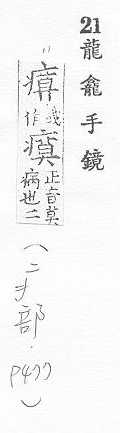 21 龍龕手鏡
或作瘼正音莫病也二
部. P477)